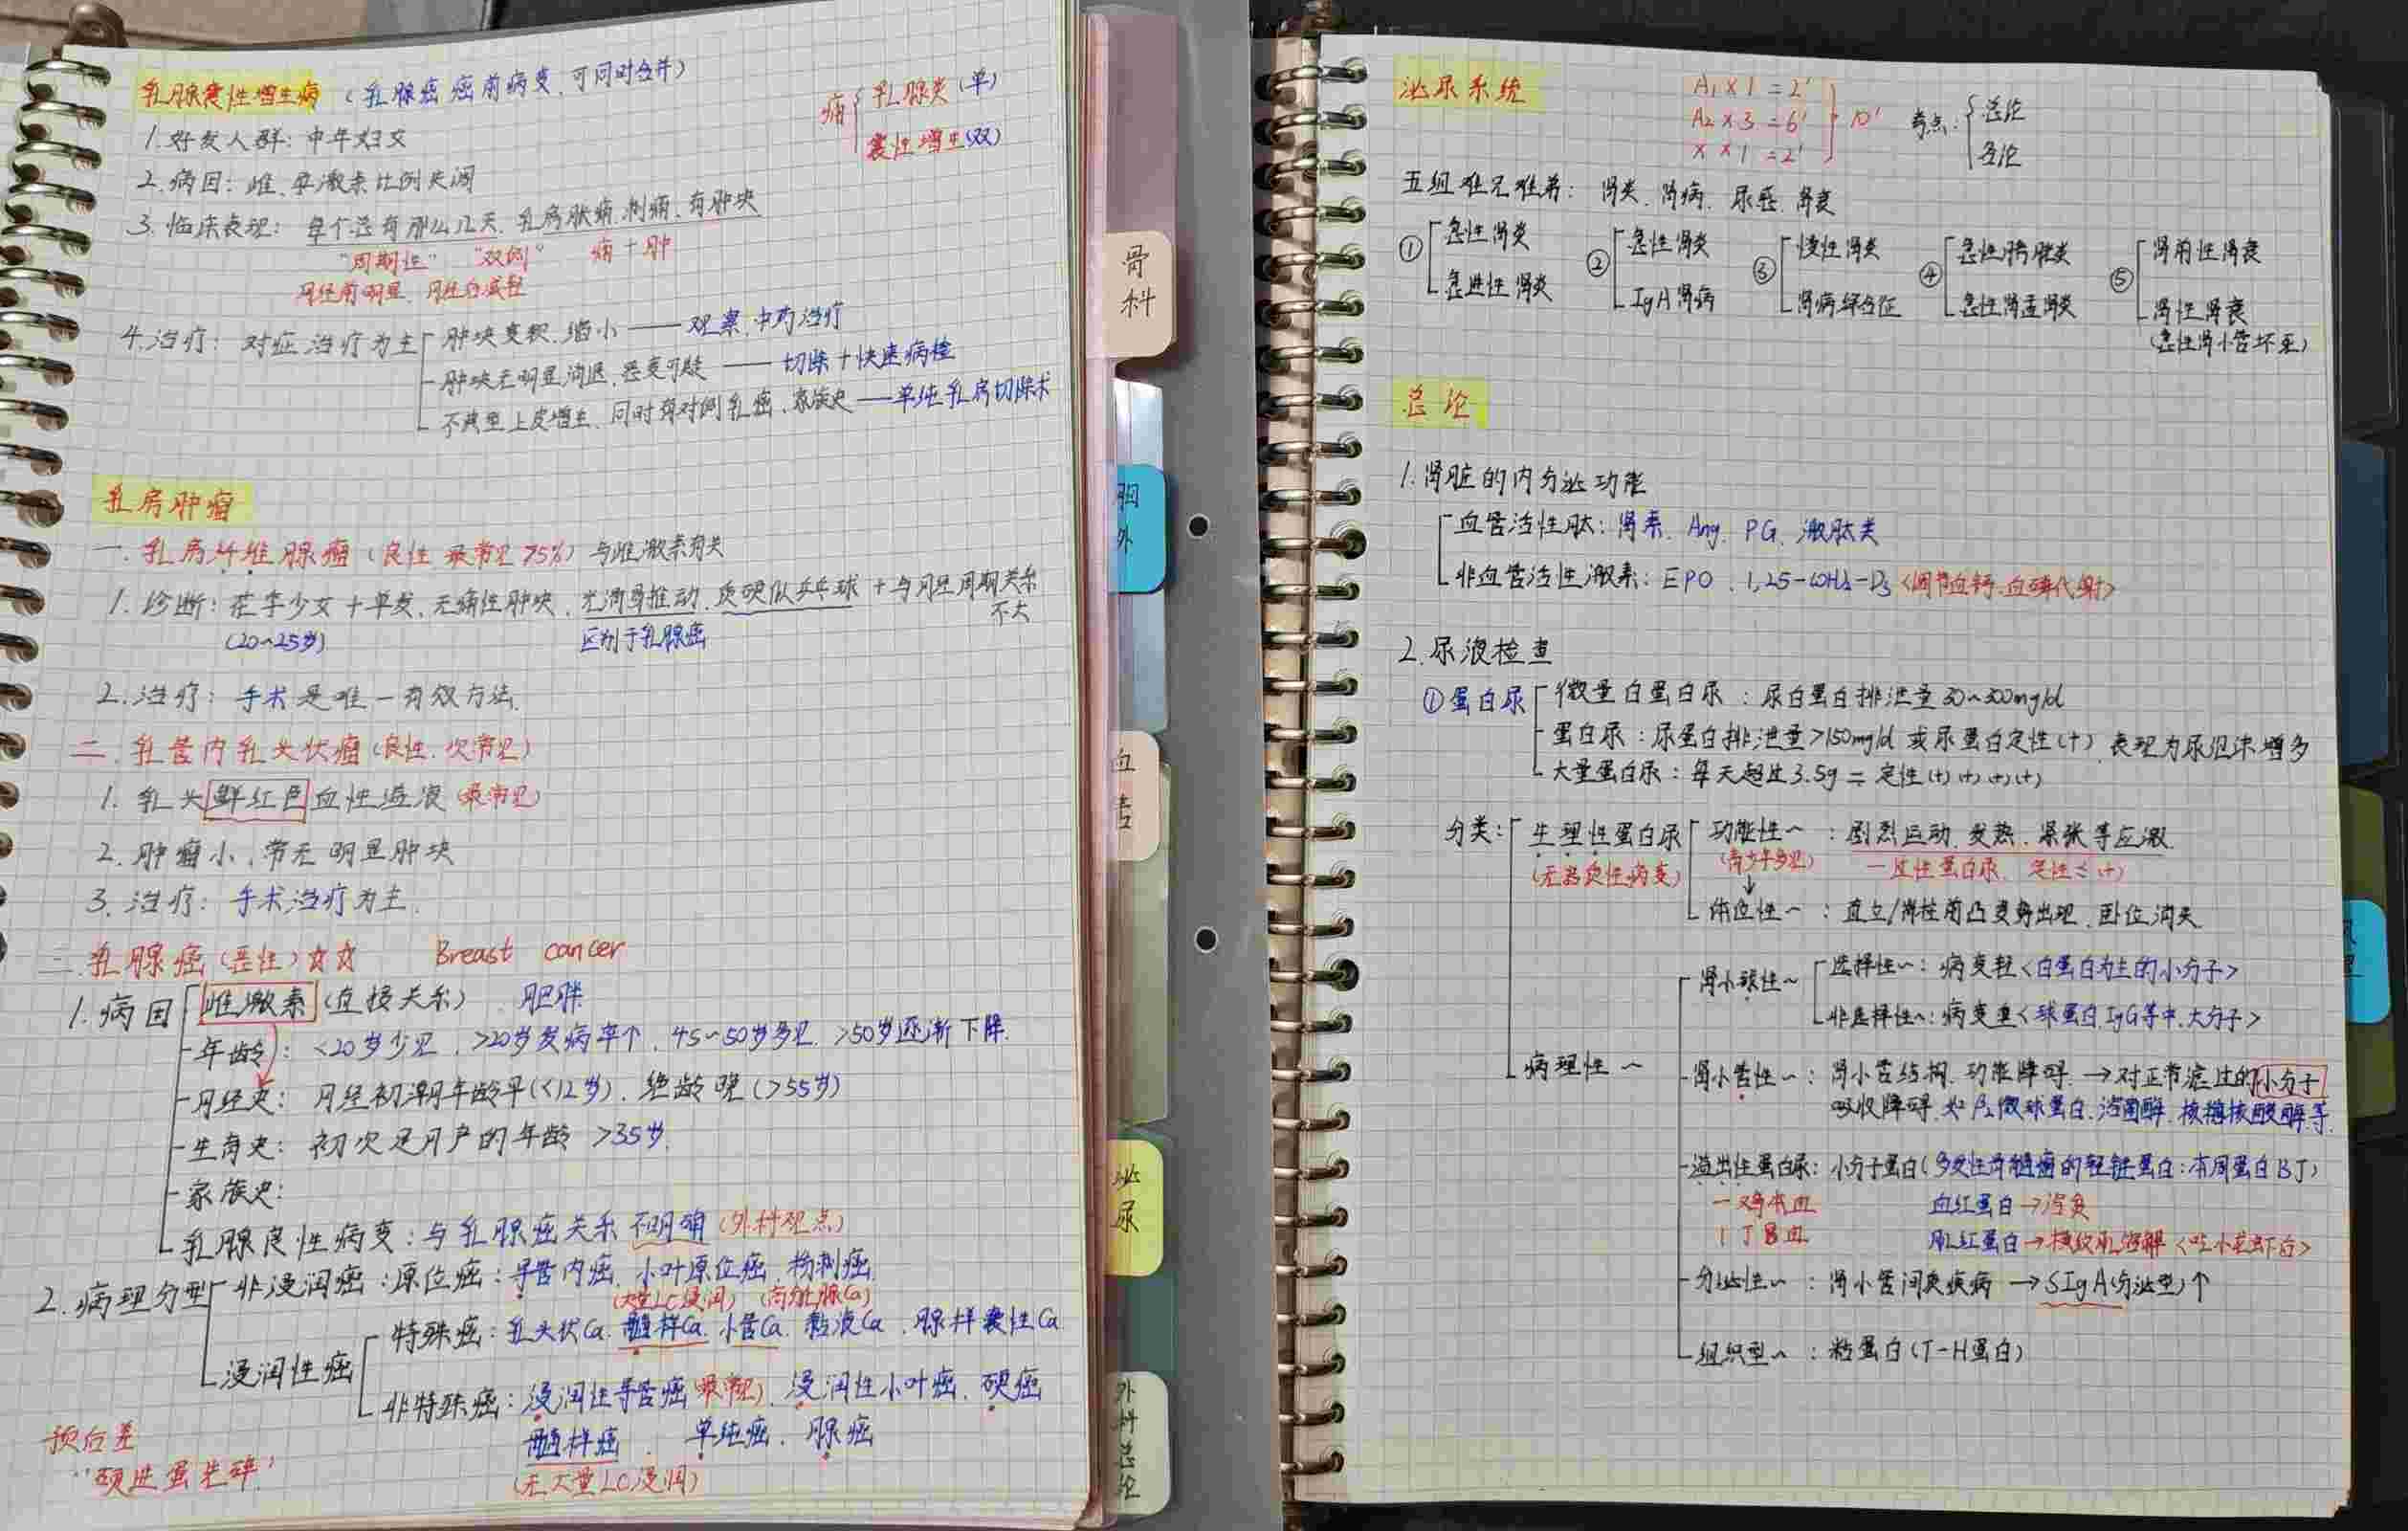 乳腺囊性增生病 (乳腺癌癌前病变,可同时合并)
痛 乳腺炎(单)
囊性增生(双)
1.好发人群:中年妇女
2.病因:雌、孕激素比例失调
3.临床表现:每个总有那么几天,乳房胀痛,刺痛,有肿块
"周期性" "双侧" 痛+肿
月经前明显,月经后减轻
4.治疗:对症治疗为主
肿块变软,缩小——观察,中药治疗
肿块无明显消退,恶变可疑——切除+快速病检
不典型上皮增生,同时有对侧乳癌,家族史——单纯乳房切除术
乳房肿瘤
一.乳房纤维腺瘤(良性 最常见 75%)与雌激素有关
1.诊断:花季少女+单发,无痛性肿块,光滑易推动,质硬似乒乓球+与月经周期关系
不大
(20~25岁) 区别于乳腺癌
2.治疗:手术是唯一有效方法.
二.乳管内乳头状瘤(良性,次常见)
1.乳头鲜红色血性溢液(最常见)
2.肿瘤小,常无明显肿块
3.治疗:手术治疗为主.
三.乳腺癌(恶性)☆☆ Breast cancer
1.病因 雌激素(直接关系) 肥胖
年龄:<20岁少见,>20岁发病率↑,45~50岁多见,>50岁逐渐下降.
月经史:月经初潮年龄早(<12岁),绝龄晚(>55岁)
生育史:初次足月产的年龄>35岁.
家族史:
乳腺良性病变:与乳腺癌关系不明确(外科观点)
2.病理分型 非浸润癌:原位癌:导管内癌,小叶原位癌,粉刺癌
(大量LC浸润) (高分化腺Ca)
浸润性癌 特殊癌:乳头状Ca.髓样Ca.小管Ca.黏液Ca.腺样囊性Ca
非特殊癌:浸润性导管癌(最常见),浸润性小叶癌,硬癌
髓样癌,单纯癌,腺癌
(无大量LC浸润)
预后差
骨科
胸外
泌尿
外科总论
泌尿系统
A1×1=2'
A2×3=6' 10'
X×1=2'
考点: 总论
各论
五组难兄难弟:肾炎,肾病,尿感,肾衰
① 急性肾炎
急进性肾炎
② 急性肾炎
IgA肾病
③ 慢性肾炎
肾病综合征
④ 急性膀胱炎
急性肾盂肾炎
⑤ 肾前性肾衰
肾性肾衰
(急性肾小管坏死)
总论
1.肾脏的内分泌功能
血管活性肽:肾素,Ang,PG,激肽类
非血管活性激素:EPO,1,25-(OH)2-D3<调节血钙,血磷代谢>
2.尿液检查
①蛋白尿 微量白蛋白尿:尿白蛋白排泄量30~300mg/d
蛋白尿:尿蛋白排泄量>150mg/d 或尿蛋白定性(+) 表现为尿泡沫增多
大量蛋白尿:每天超过3.5g = 定性(+)(+)(+)(+)
分类: 生理性蛋白尿 功能性~:剧烈运动,发热,紧张等应激
(无器质性病变) (青少年多见) 一过性蛋白尿,定性≤(+)
体位性~:直立/脊柱前凸姿势出现,卧位消失
病理性~
肾小球性~ 选择性~:病变轻<白蛋白为主的小分子>
非选择性~:病变重<球蛋白IgG等中,大分子>
肾小管性~:肾小管结构,功能障碍→对正常滤过的小分子
吸收障碍,如β2微球蛋白,溶菌酶,核糖核酸酶等
溢出性蛋白尿:小分子蛋白(多发性骨髓瘤的轻链蛋白:本周蛋白BJ)
血红蛋白→溶贫
肌红蛋白→横纹肌溶解<吃小龙虾后>
分泌性~:肾小管间质疾病→SIgA(分泌型)↑
组织型~:粘蛋白(T-H蛋白)